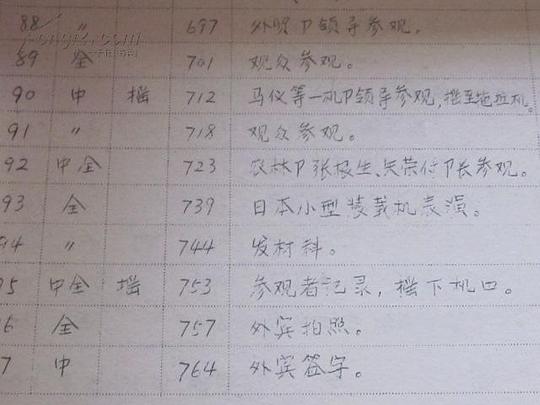 88 〃 697 外贸卩领导参观。
89 全 701 观众参观。
90 中 摇 712 马仪等一机卩领导参观,摇至拖拉机。
91 〃 718 观众参观。
92 中全 723 农林卩张根生、朱荣付卩长参观。
93 全 739 日本小型装载机表演。
94 〃 744 发材料。
95 中全 摇 753 参观者记录,摇下机口。
6 全 757 外宾拍照。
7 中 764 外宾签字。